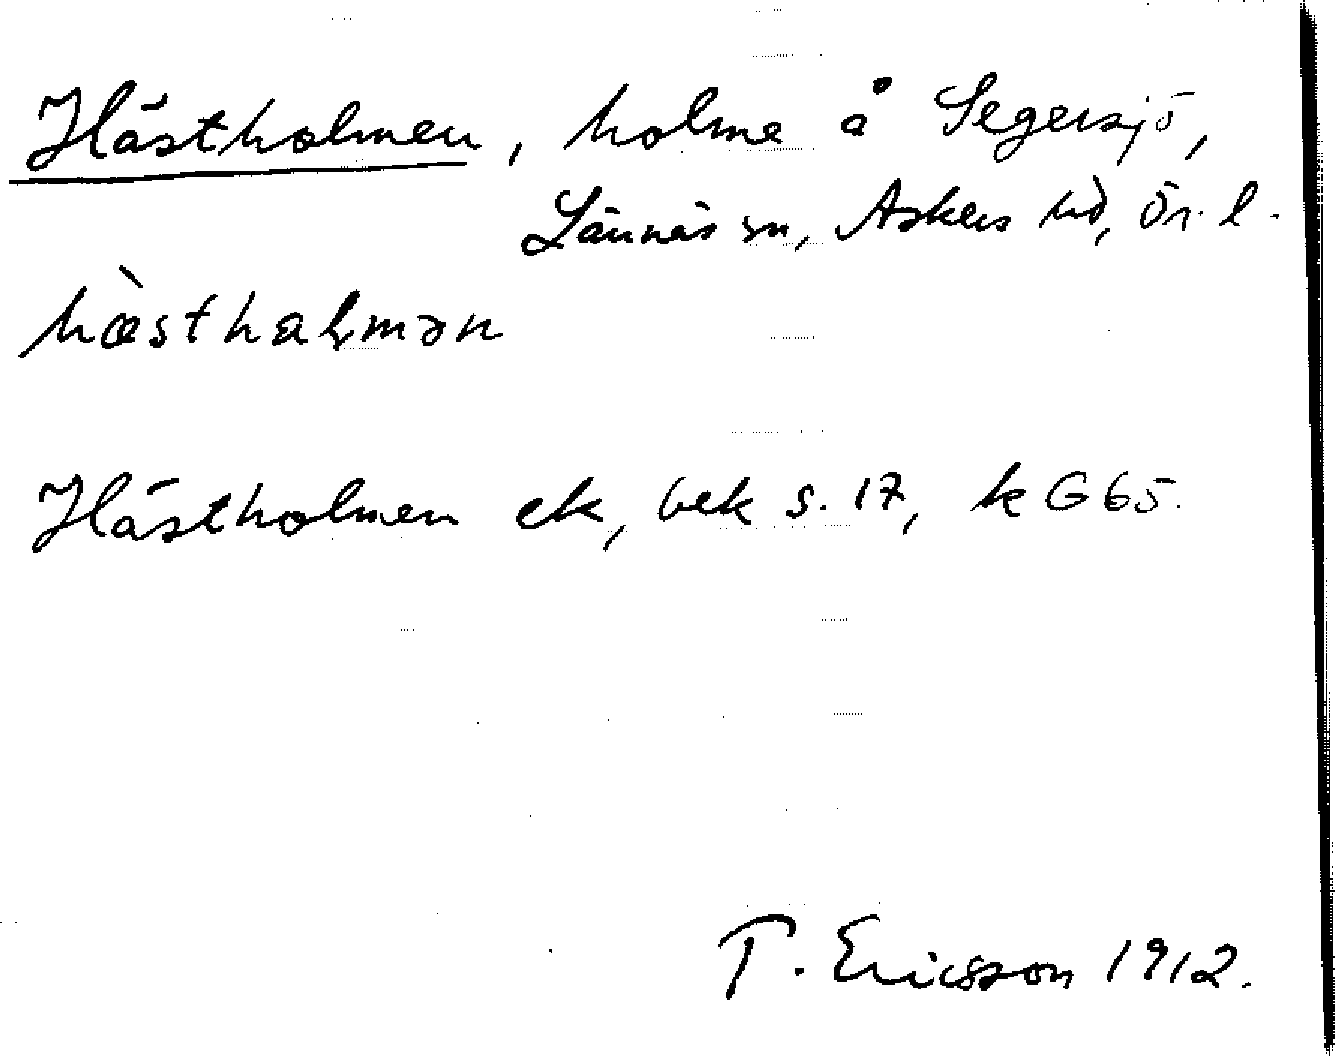 Hästholmen, holme å Segersjö,
Lännäs sn, Askers hd, Ör. l.
hæ̀sthaɭmən
Hästholmen ek, bek s. 17, k G 65.
T. Ericsson 1912.